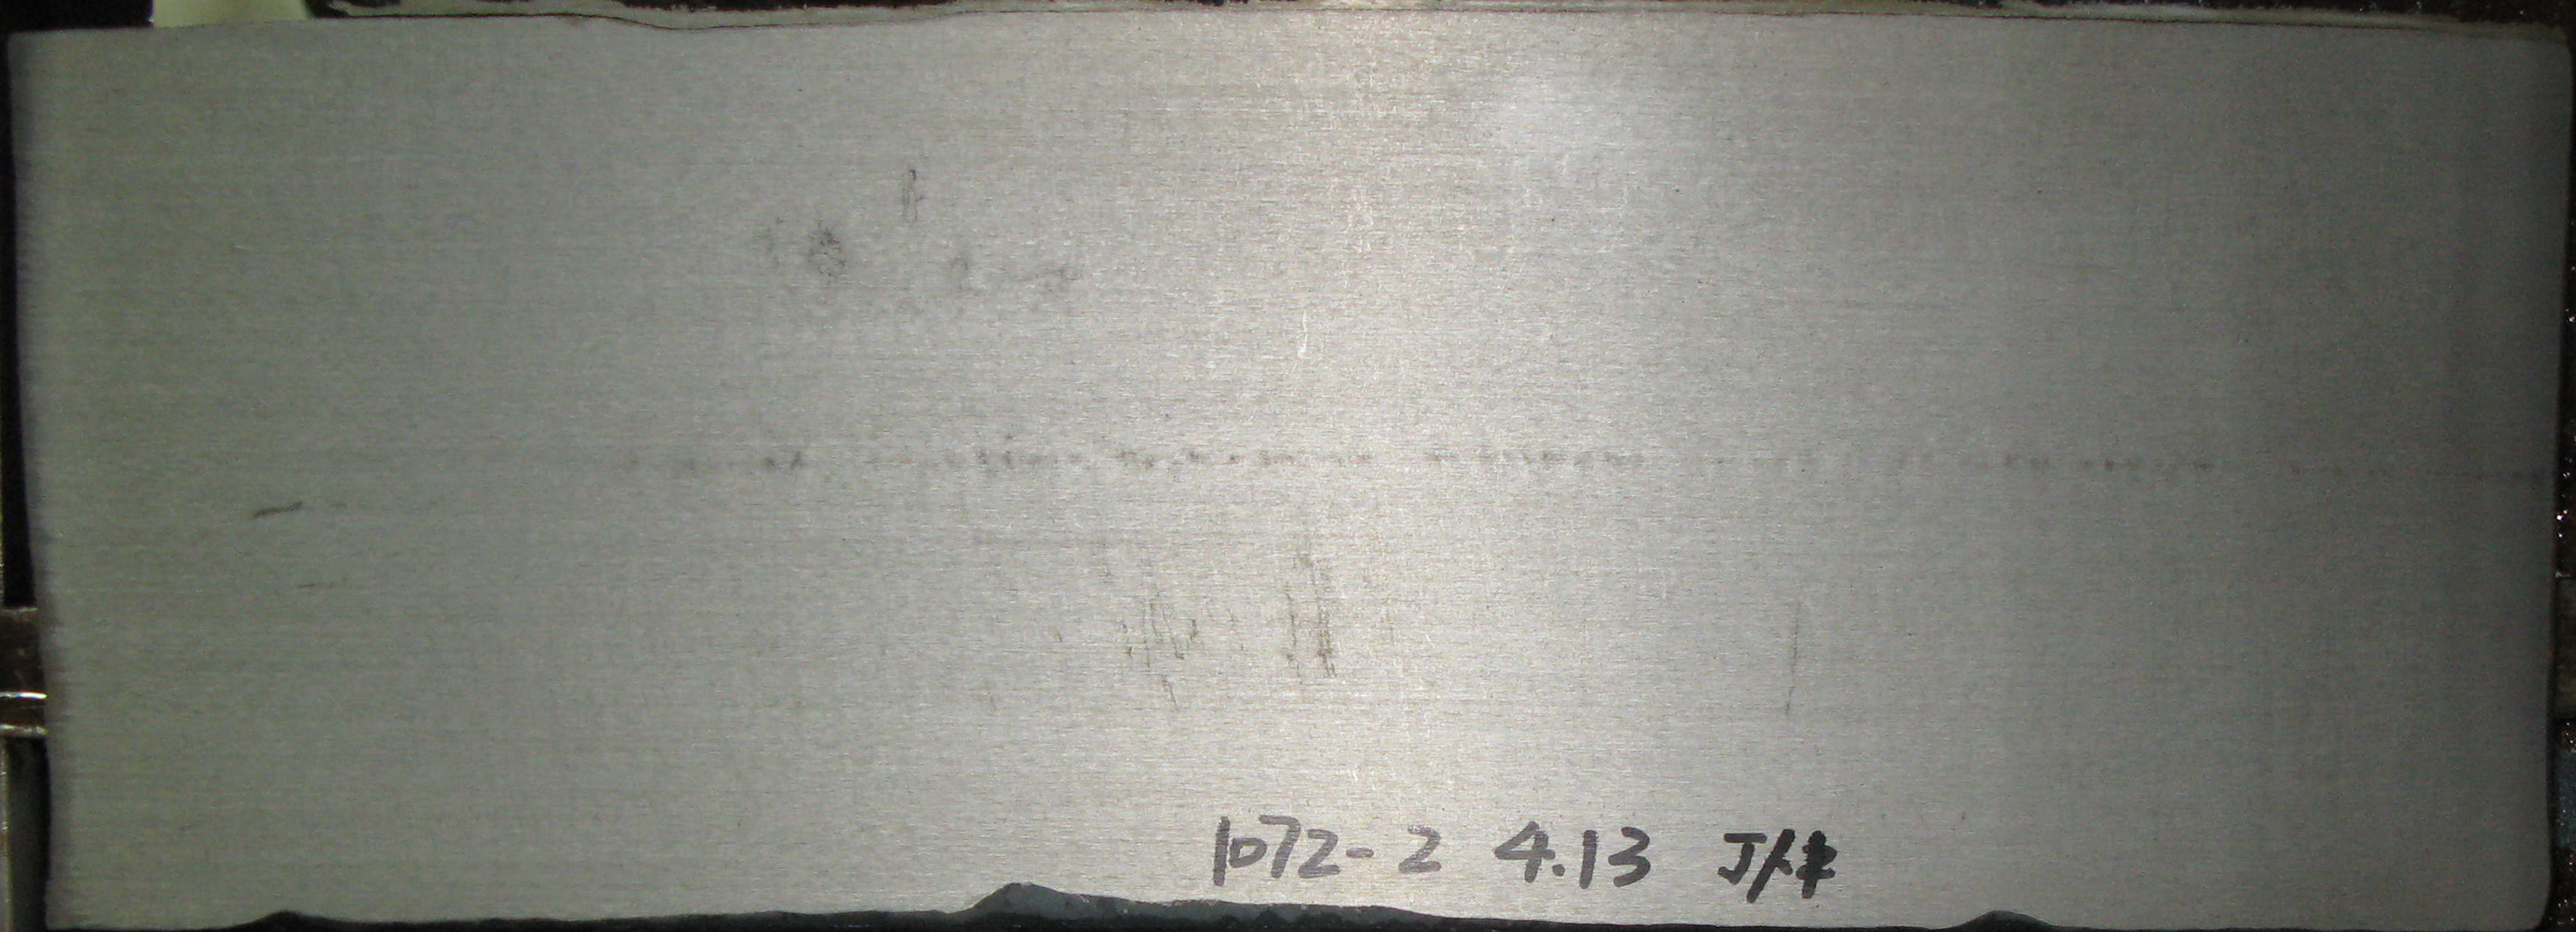 1072-2 4.13